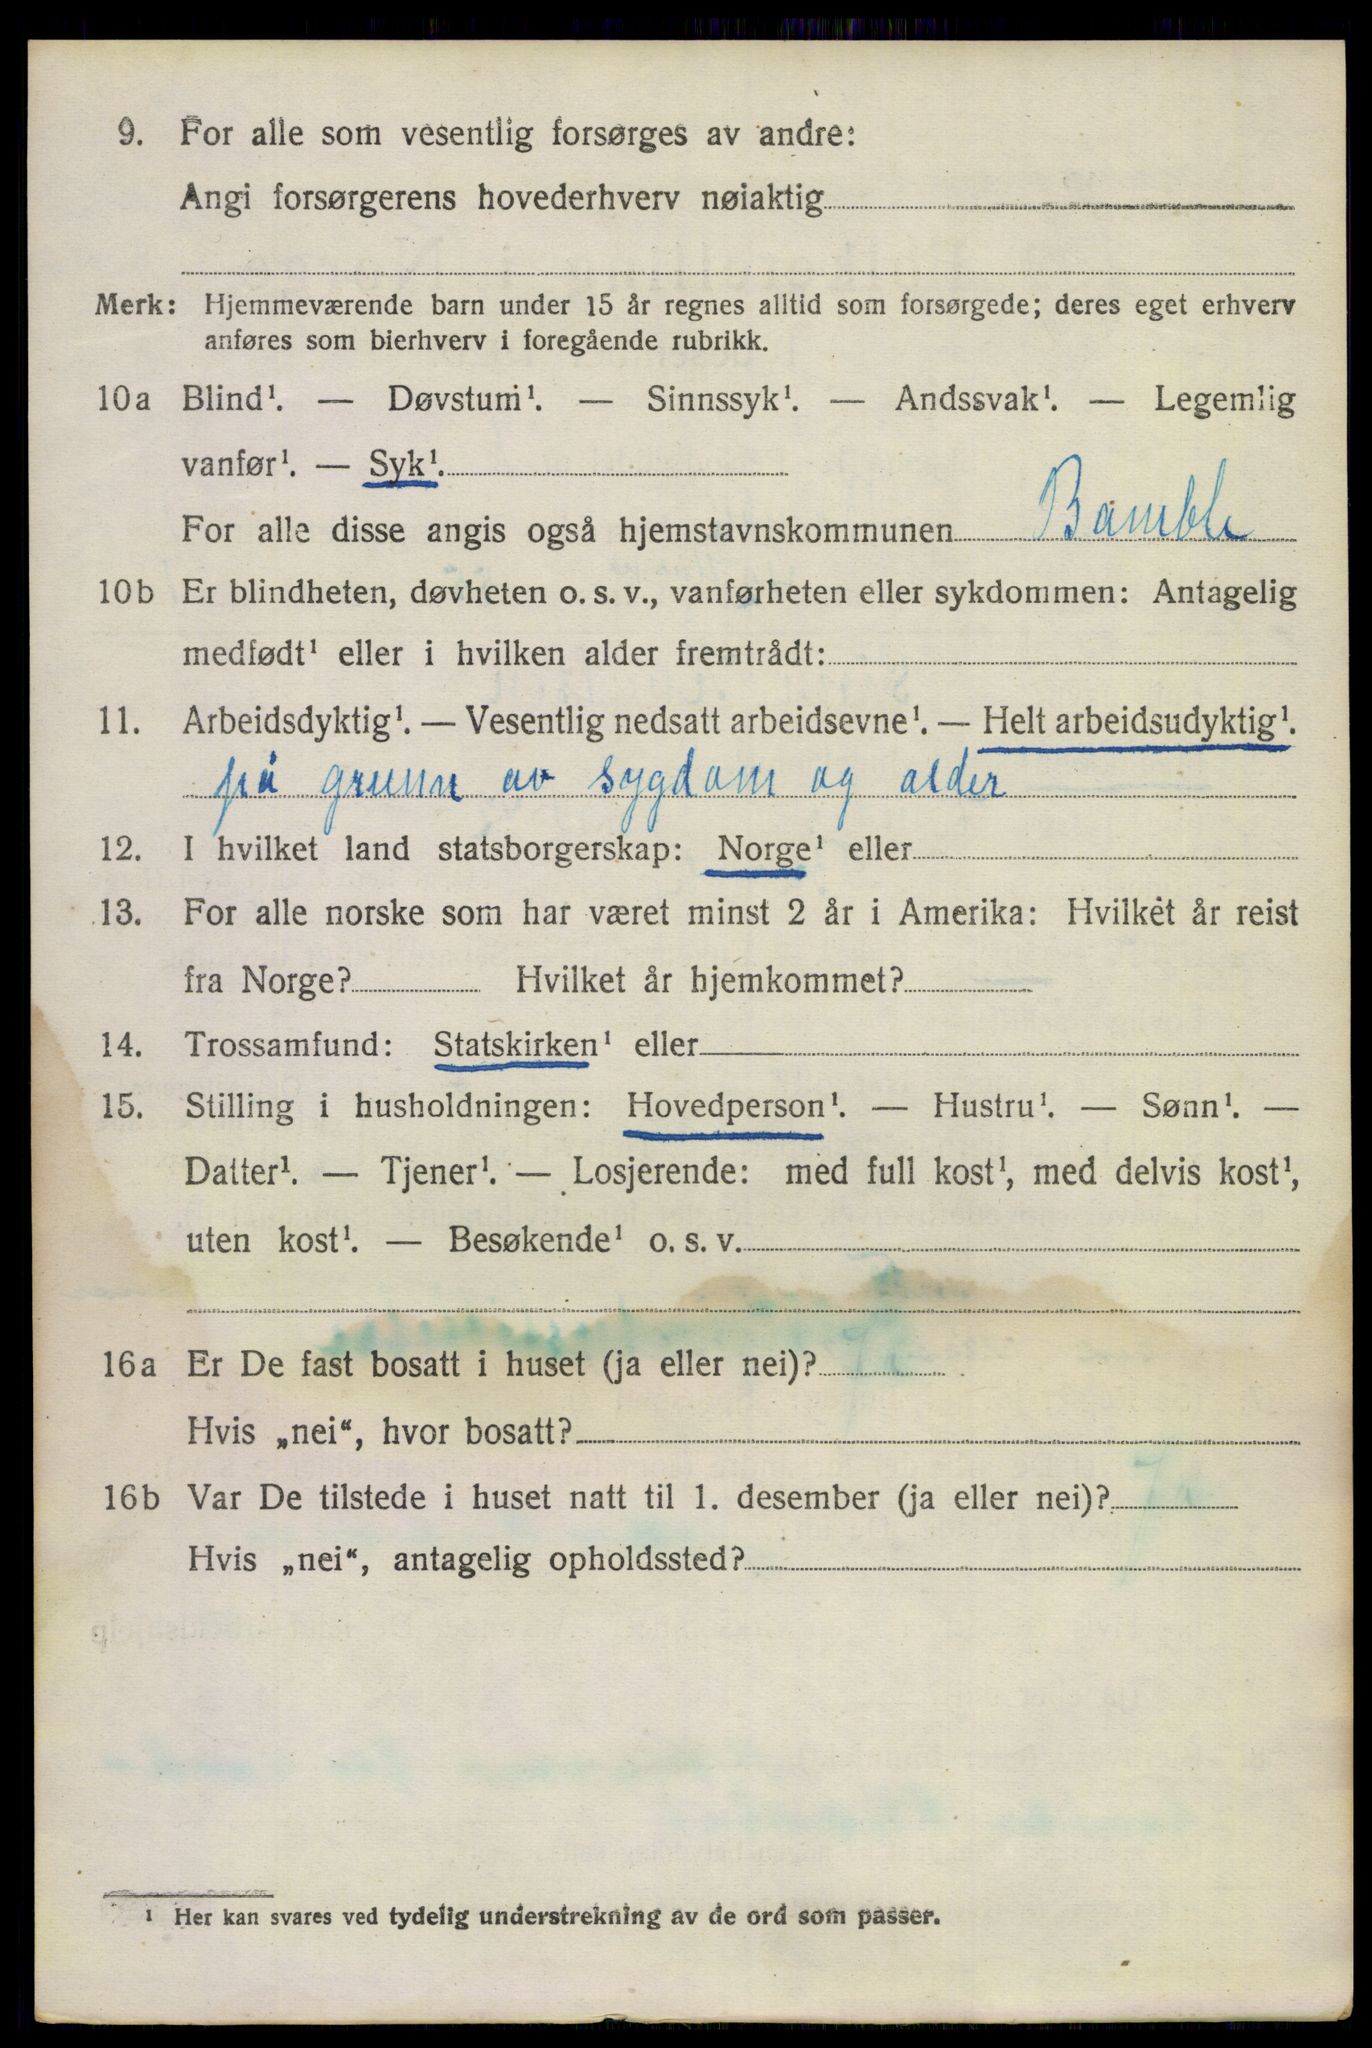 9. For alle som vesentlig forsørges av andre:
Angi forsørgerens hovederhverv nøiaktig
Merk: Hjemmeværende barn under 15 år regnes alltid som forsørgede; deres eget erhverv
anføres som bierhverv i foregående rubrikk.
10a Blind¹. — Døvstum¹. — Sinnssyk¹. — Andssvak¹. — Legemlig
vanfør¹. — Syk¹.
For alle disse angis også hjemstavnskommunen Bamble
10b Er blindheten, døvheten o. s. v., vanførheten eller sykdommen: Antagelig
medfødt¹ eller i hvilken alder fremtrådt:
11. Arbeidsdyktig¹. — Vesentlig nedsatt arbeidsevne¹. — Helt arbeidsudyktig¹.
på grunn av sygdom og alder
12. I hvilket land statsborgerskap: Norge¹ eller
13. For alle norske som har været minst 2 år i Amerika: Hvilket år reist
fra Norge? Hvilket år hjemkommet?
14. Trossamfund: Statskirken¹ eller
15. Stilling i husholdningen: Hovedperson¹. — Hustru¹. — Sønn¹. —
Datter¹. — Tjener¹. — Losjerende: med full kost¹, med delvis kost¹,
uten kost¹. — Besøkende¹ o. s. v.
16a Er De fast bosatt i huset (ja eller nei)?
Hvis „nei“, hvor bosatt?
16b Var De tilstede i huset natt til 1. desember (ja eller nei)?
Hvis „nei“, antagelig opholdssted?
¹ Her kan svares ved tydelig understrekning av de ord som passer.